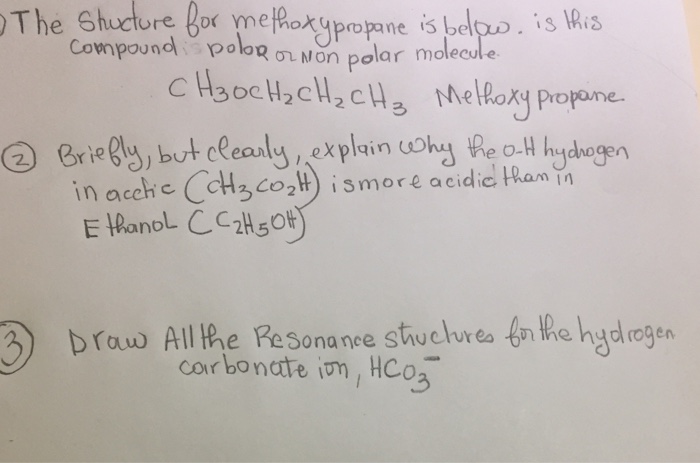 ) The Structure for methoxypropane is below. is this
compound polar or Non polar molecule.
CH3OCH2CH2CH3 Methoxy propane
② Briefly, but clearly, explain why the O-H hydrogen
in acetic (CH3CO2H) is more acidic than in
Ethanol (C2H5OH)
③ Draw All the Resonance structures for the hydrogen
carbonate ion, HCO3⁻